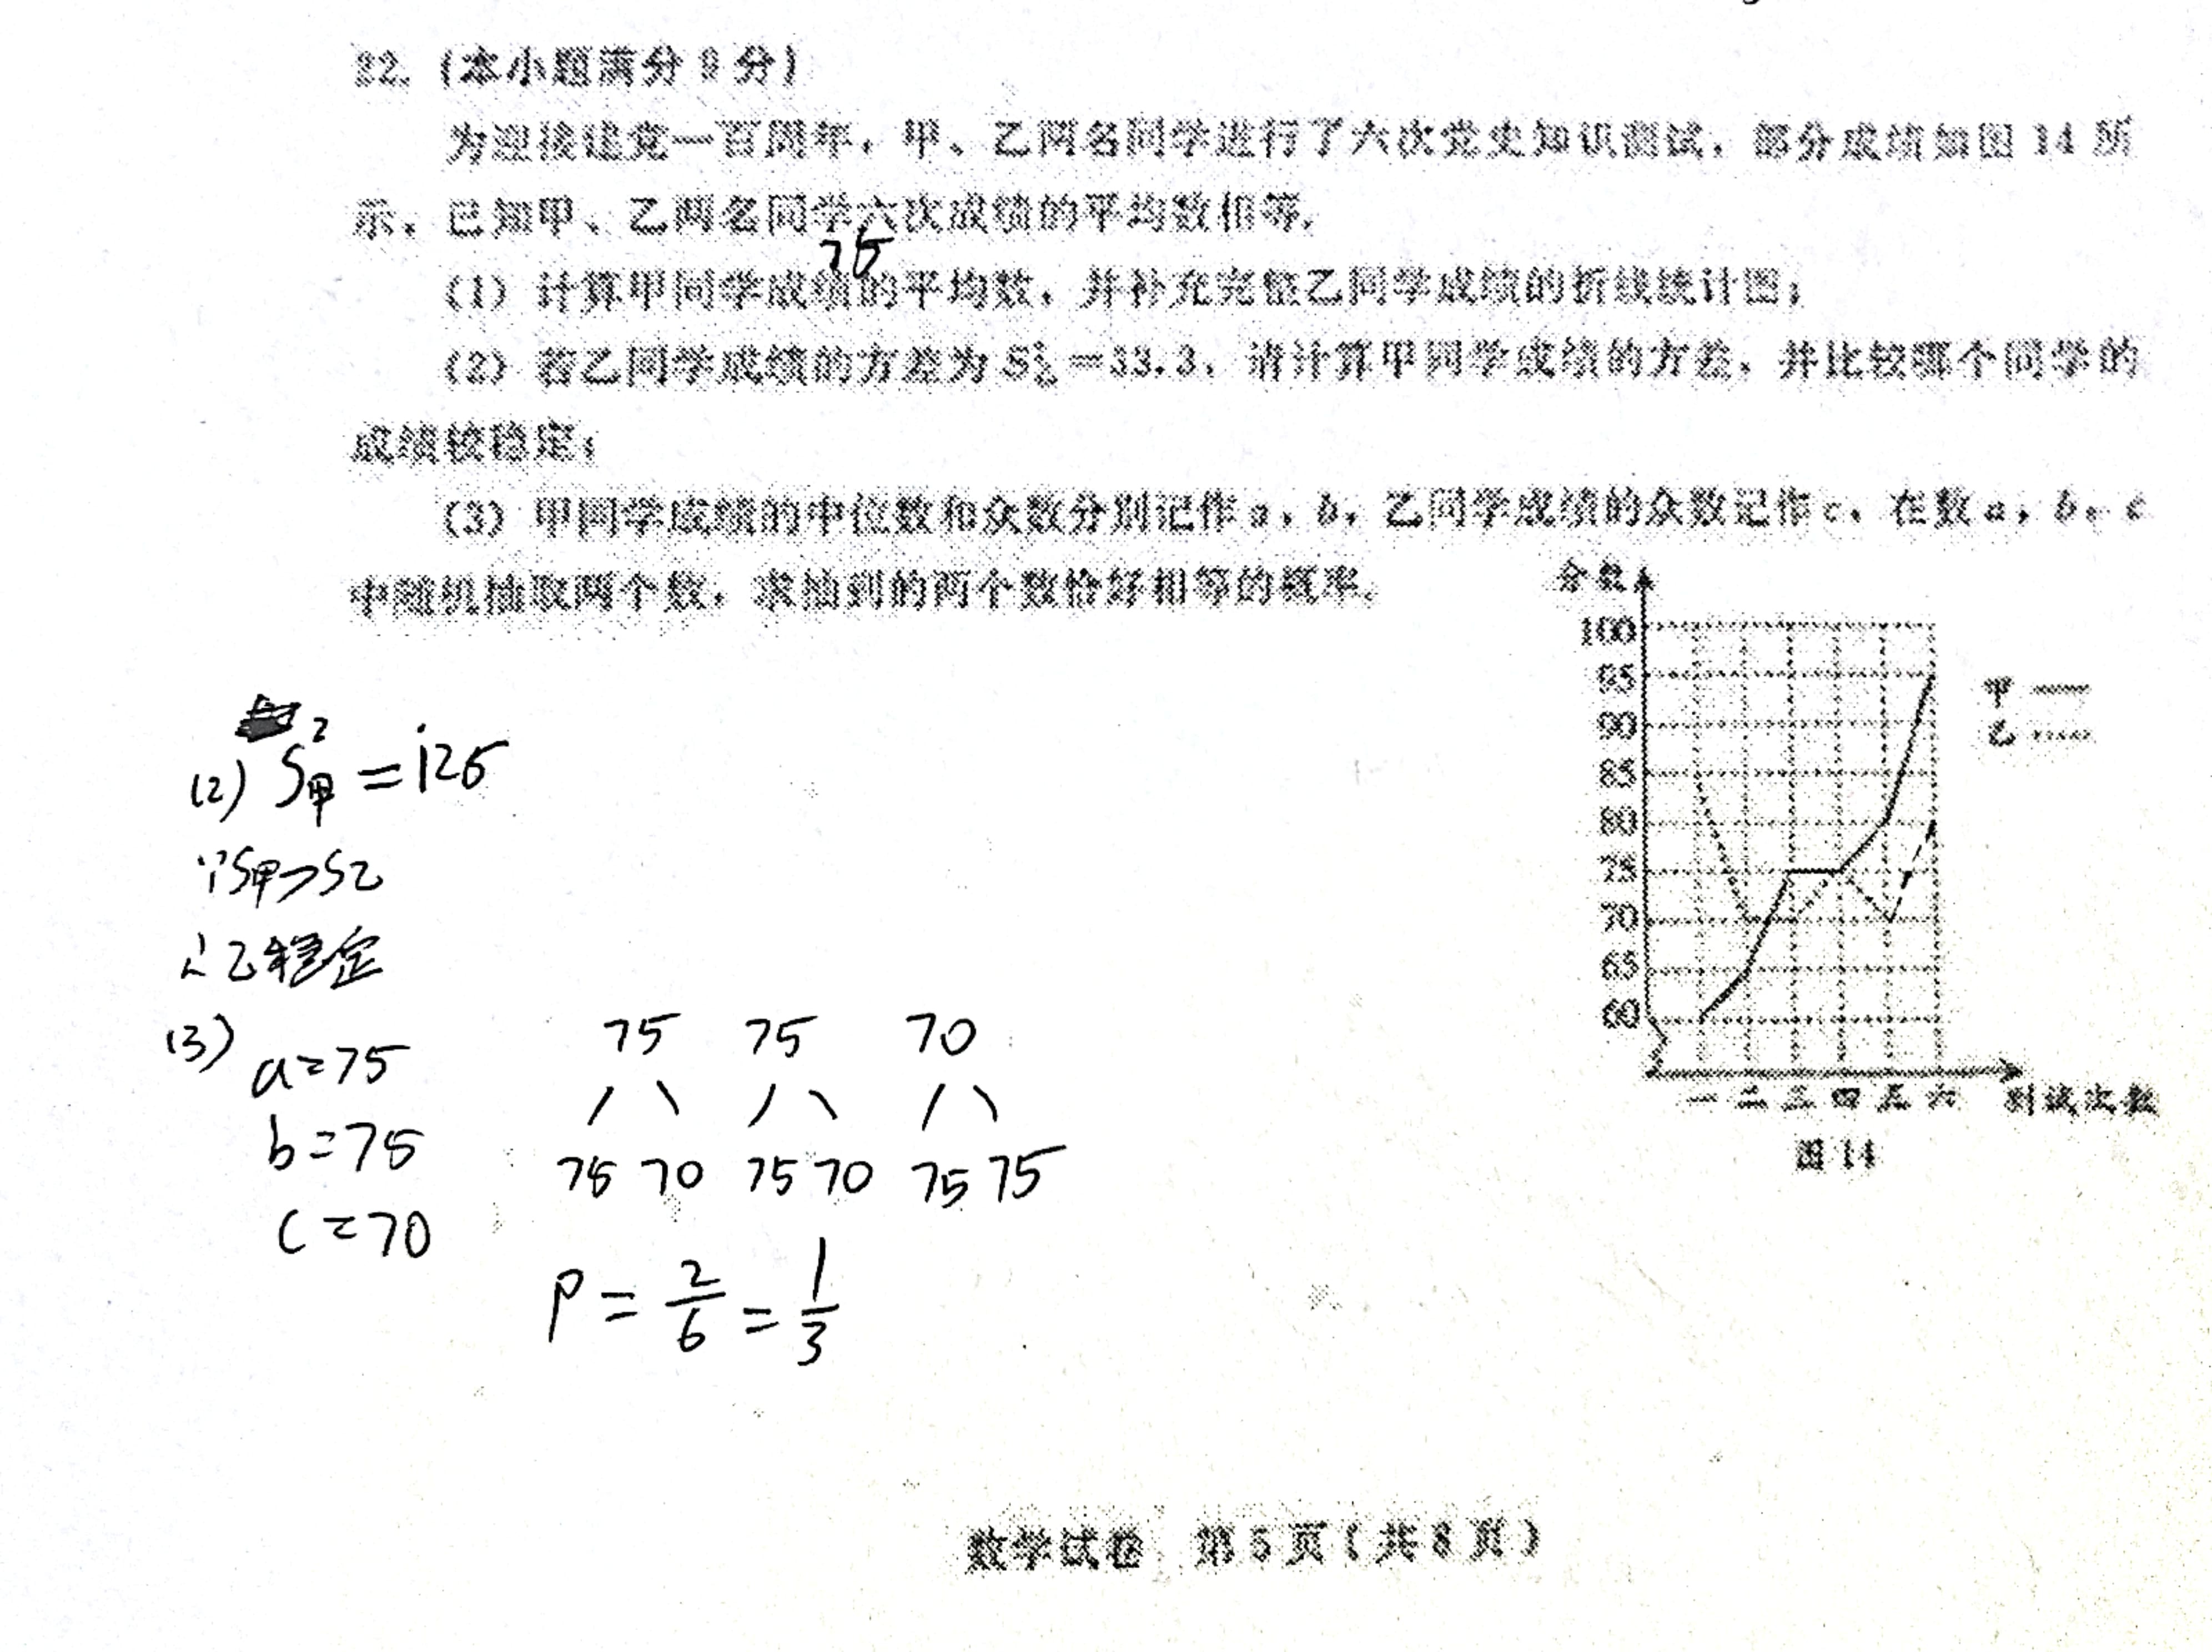 22. (本小题满分 9 分)
为迎接建党一百周年，甲、乙两名同学进行了六次党史知识测试，部分成绩如图 14 所
示，已知甲、乙两名同学六次成绩的平均数相等.
75
(1) 计算甲同学成绩的平均数，并补充完整乙同学成绩的折线统计图；
(2) 若乙同学成绩的方差为 S²乙=33.3，请计算甲同学成绩的方差，并比较哪个同学的
成绩较稳定；
(3) 甲同学成绩的中位数和众数分别记作 a，b，乙同学成绩的众数记作 c，在数 a，b，c
中随机抽取两个数，求抽到的两个数恰好相等的概率.
分数
100
95
90
85
80
75
70
65
60
甲
乙
一 二 三 四 五 六 测试次数
图 14
(2) S²甲 = 125
∵S甲>S乙
∴乙稳定
(3) a=75
b=75
c=70
75 75 70
75 70 75 70 75 75
P = 2/6 = 1/3
数学试卷 第 5 页 (共 8 页)